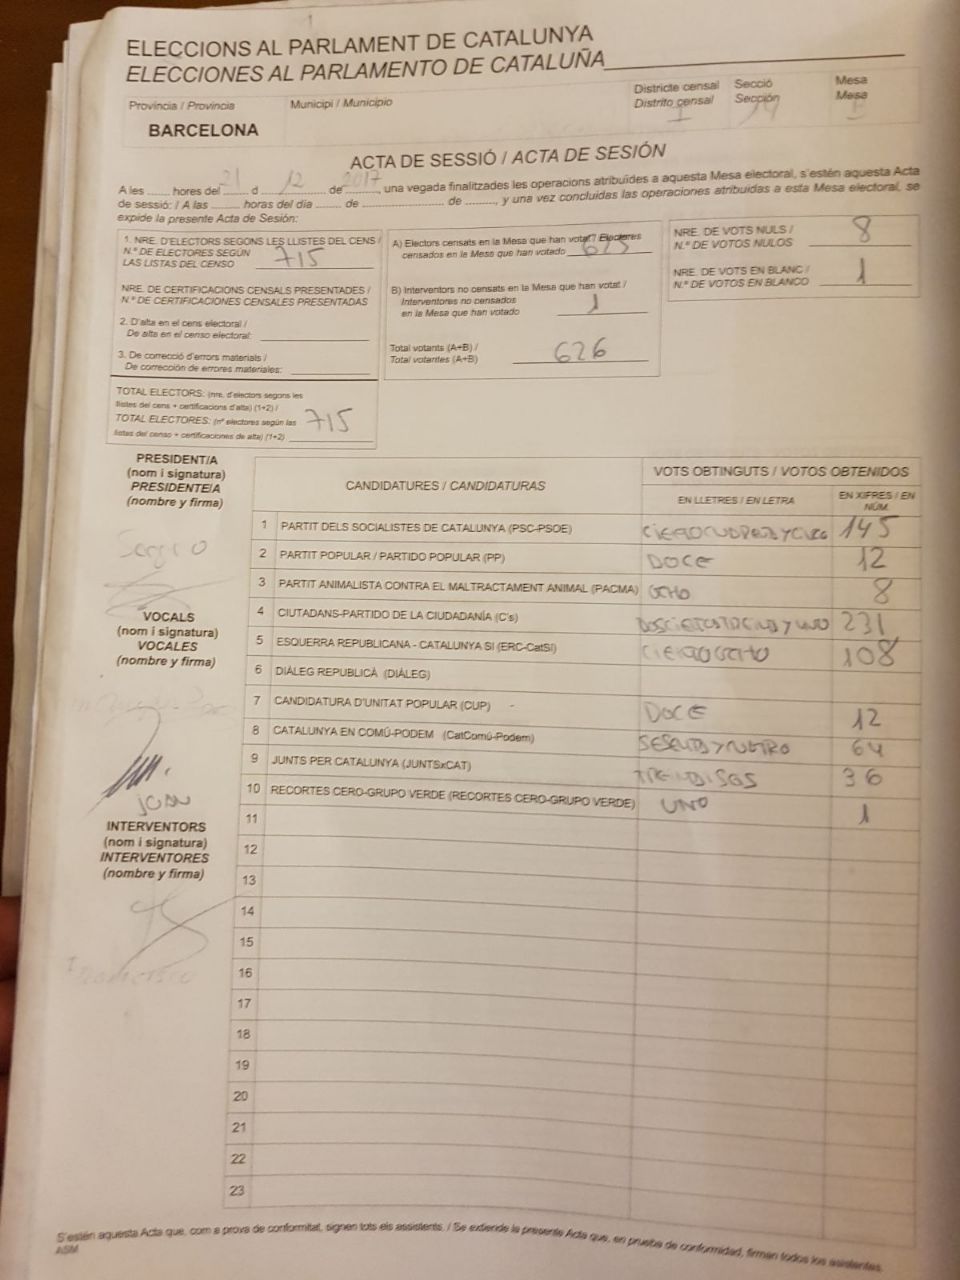 ELECCIONS AL PARLAMENT DE CATALUNYA
ELECCIONES AL PARLAMENTO DE CATALUÑA
Província / Provincia
Municipi / Municipio
Districte censal Secció Mesa
Distrito censal Sección Mesa
BARCELONA
ACTA DE SESSIÓ / ACTA DE SESIÓN
A les ........ hores del 21 d 12 de 2017, una vegada finalitzades les operacions atribuïdes a aquesta Mesa electoral, s'estén aquesta Acta
de sessió: / A las ........ horas del día ........ de ........................ de ........, y una vez concluidas las operaciones atribuidas a esta Mesa electoral, se
expide la presente Acta de Sesión:
1. NRE. D'ELECTORS SEGONS LES LLISTES DEL CENS /
N.º DE ELECTORES SEGÚN
LAS LISTAS DEL CENSO 715
NRE. DE CERTIFICACIONS CENSALS PRESENTADES /
N.º DE CERTIFICACIONES CENSALES PRESENTADAS
2. D'alta en el cens electoral /
De alta en el censo electoral:
3. De correcció d'errors materials /
De corrección de errores materiales:
TOTAL ELECTORS: (nre. d'electors segons les
llistes del cens + certificacions d'alta) (1+2) /
TOTAL ELECTORES: (nº electores según las
listas del censo + certificaciones de alta) (1+2) 715
A) Electors censats en la Mesa que han votat / Electores
censados en la Mesa que han votado 625
B) Interventors no censats en la Mesa que han votat /
Interventores no censados
en la Mesa que han votado 1
Total votants (A+B) /
Total votantes (A+B) 626
NRE. DE VOTS NULS /
N.º DE VOTOS NULOS 8
NRE. DE VOTS EN BLANC /
N.º DE VOTOS EN BLANCO 1
PRESIDENT/A
(nom i signatura)
PRESIDENTE/A
(nombre y firma)
Sergio
VOCALS
(nom i signatura)
VOCALES
(nombre y firma)
JOAN
INTERVENTORS
(nom i signatura)
INTERVENTORES
(nombre y firma)
Francisco
CANDIDATURES / CANDIDATURAS
VOTS OBTINGUTS / VOTOS OBTENIDOS
EN LLETRES / EN LETRA
EN XIFRES / EN
NÚM.
1 PARTIT DELS SOCIALISTES DE CATALUNYA (PSC-PSOE) 145
2 PARTIT POPULAR / PARTIDO POPULAR (PP) DOCE 12
3 PARTIT ANIMALISTA CONTRA EL MALTRACTAMENT ANIMAL (PACMA) OCHO 8
4 CIUTADANS-PARTIDO DE LA CIUDADANÍA (C's) 231
5 ESQUERRA REPUBLICANA - CATALUNYA SÍ (ERC-CatSÍ) 108
6 DIÀLEG REPUBLICÀ (DIÀLEG)
7 CANDIDATURA D'UNITAT POPULAR (CUP) - DOCE 12
8 CATALUNYA EN COMÚ-PODEM (CatComú-Podem) 64
9 JUNTS PER CATALUNYA (JUNTSxCAT) 36
10 RECORTES CERO-GRUPO VERDE (RECORTES CERO-GRUPO VERDE) UNO 1
11
12
13
14
15
16
17
18
19
20
21
22
23
S'estén aquesta Acta que, com a prova de conformitat, signen tots els assistents. / Se extiende la presente Acta que, en prueba de conformidad, firman todos los asistentes.
ASM